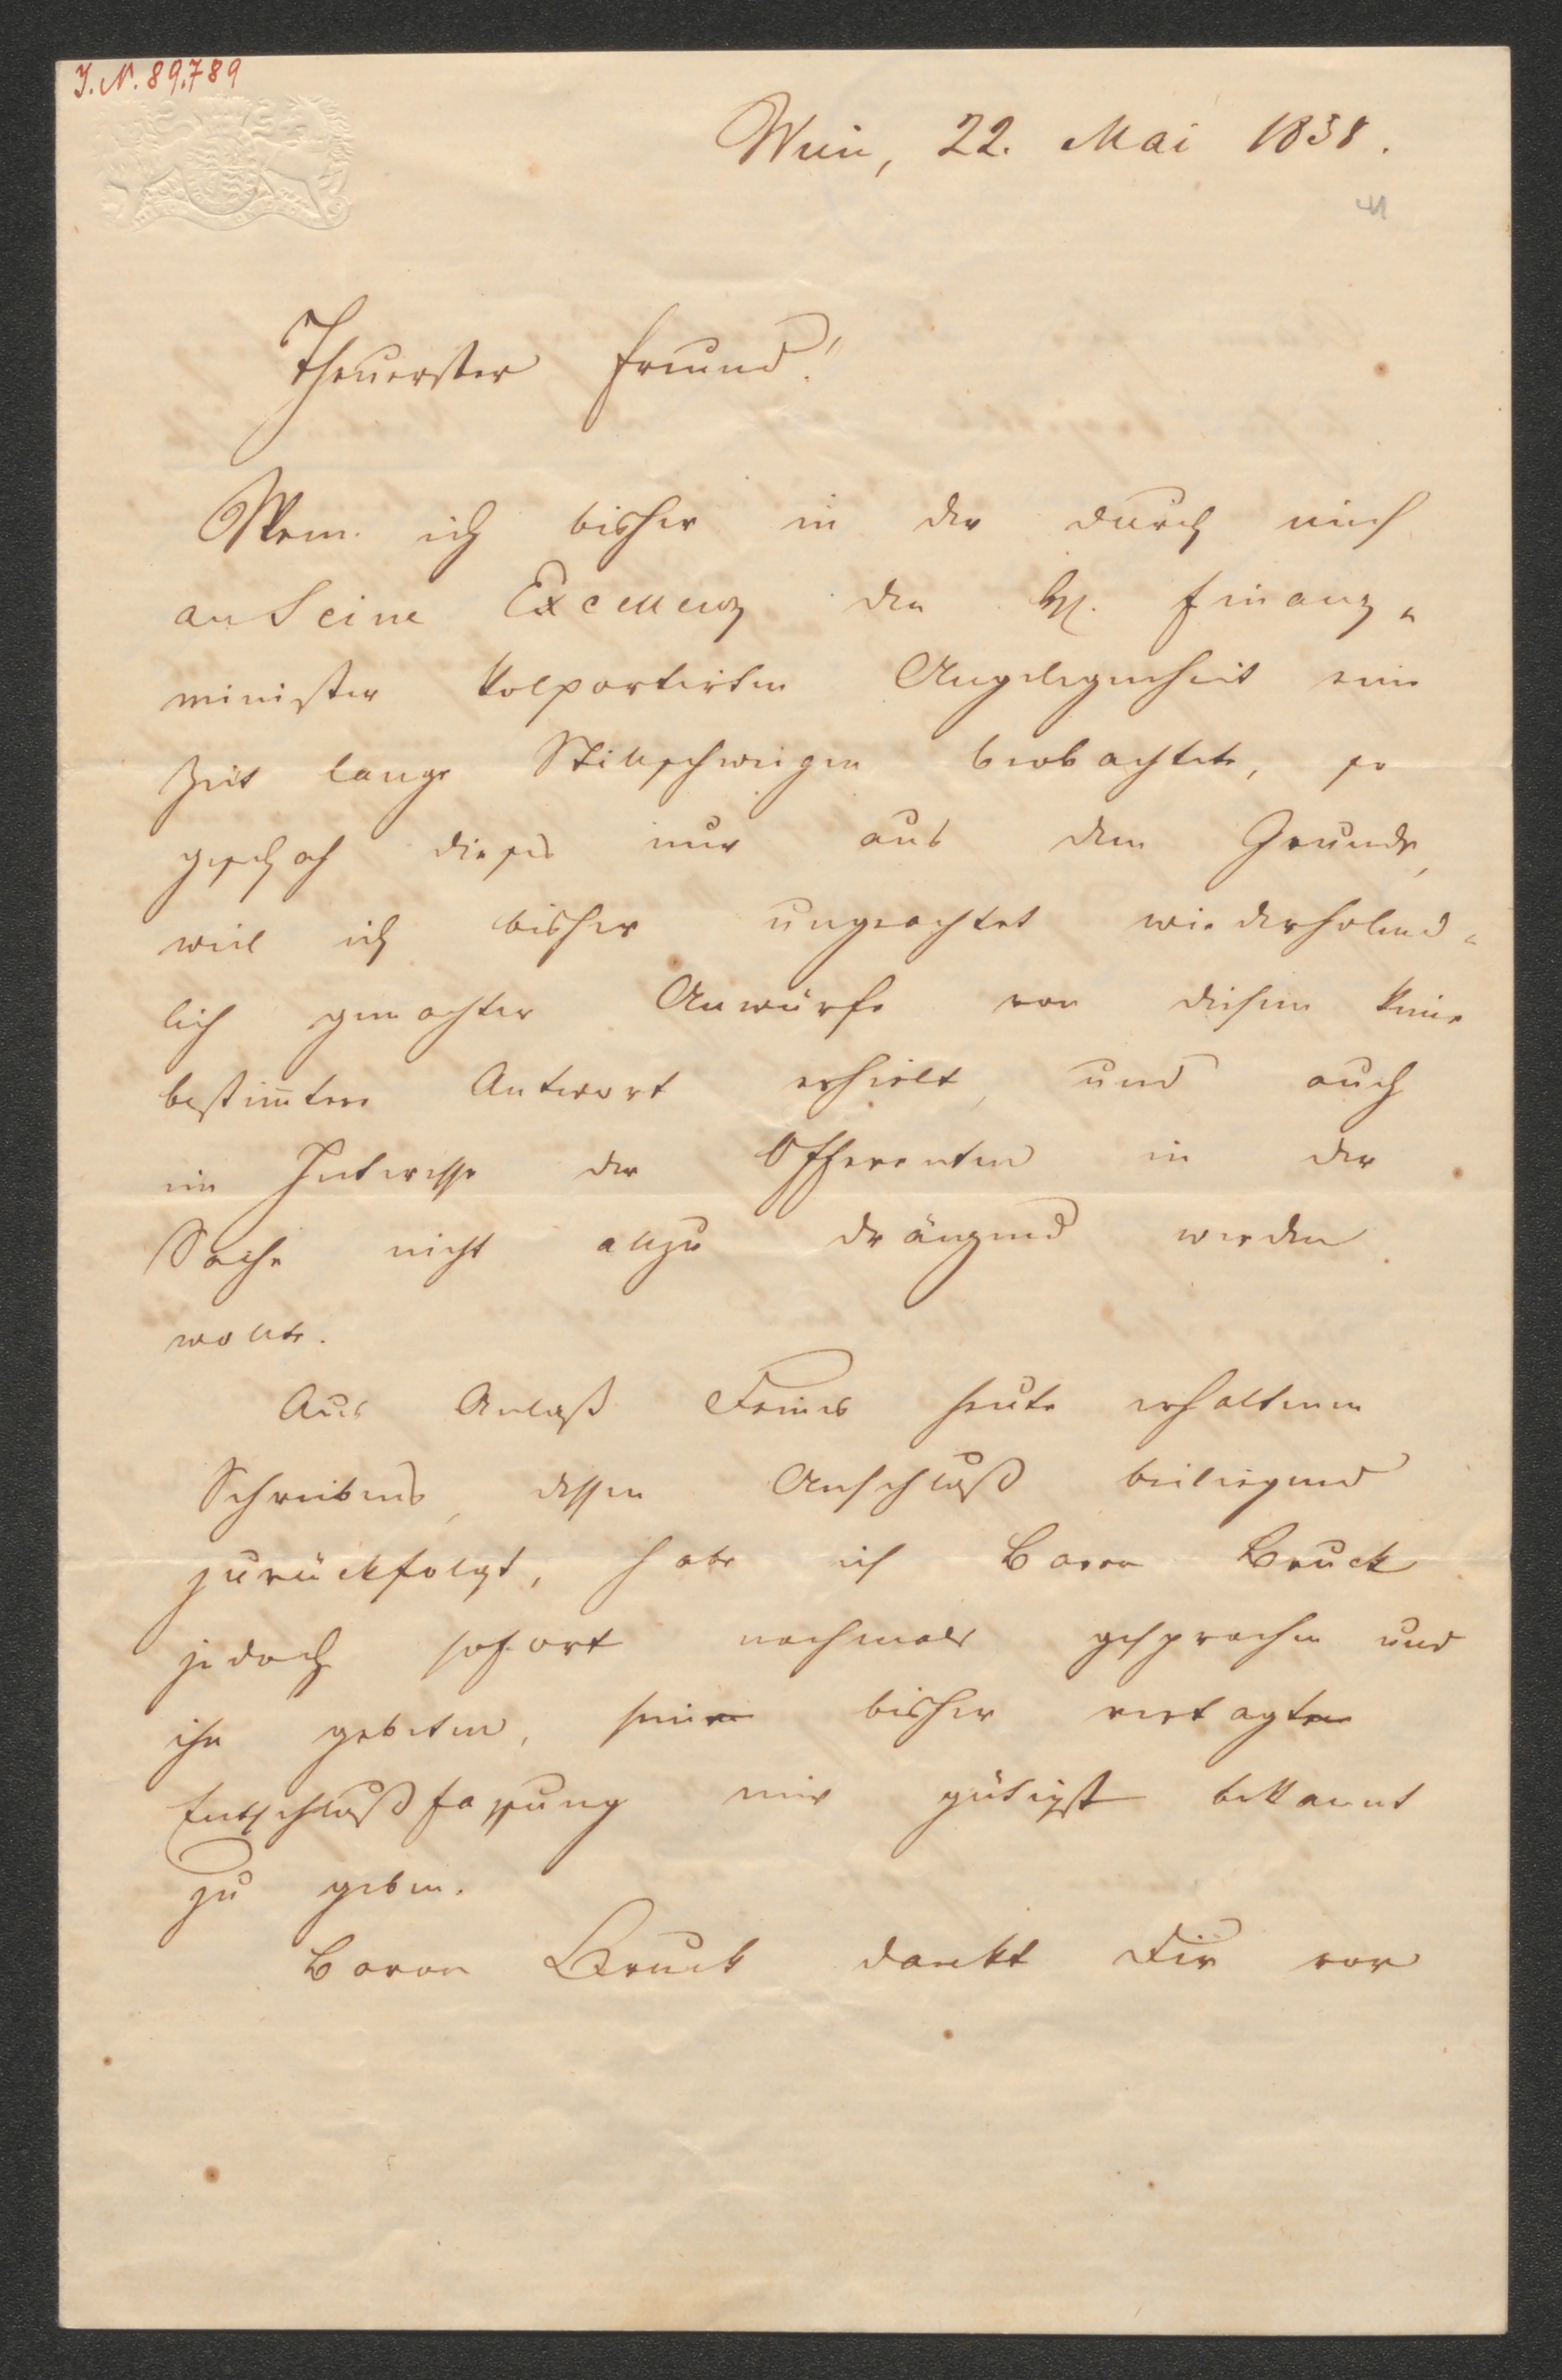 J. N. 89.789
Wien, 22. Mai 1858.
Theuerster Freund!
Wenn ich bisher in der durch mich
an Seine Excellenz den H. Finanz-
minister kolportirten Angelegenheit eine
Zeit lange Stillschweigen beobachtete, so
geschah dieses nur aus dem Grunde,
weil ich bisher ungeachtet wiederholend-
lich gemachter Anwürfe von diesem keine
bestim̄tere Antwort erhielt, und auch
im Interesse der Offerenten in der
Sache nicht allzu drängend werden
wollte.
Aus Anlaß Deines heute erhaltenen
Schreibens, dessen Anschluß beiliegend
zurückfolgt, habe ich Baron Bruck
jedoch sofort nochmals gesprochen und
ihn gebeten, seine bisher vertagte
Entschlußfassung mir gütigst bekannt
zu geben.
Baron Bruck dankt Dir vor